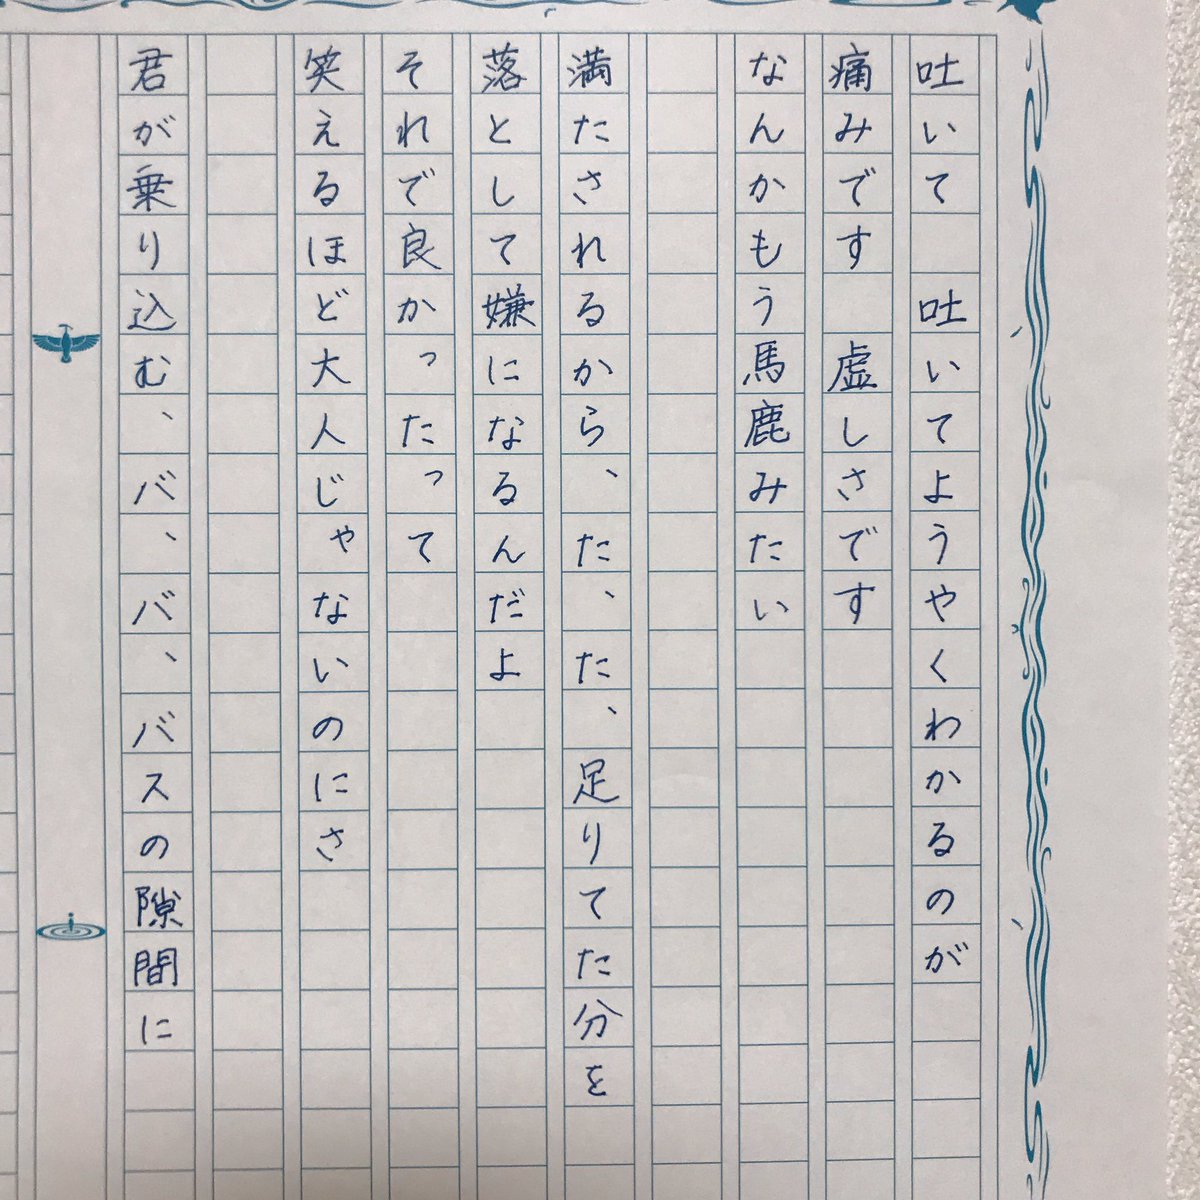 吐いて　吐いてようやくわかるのが
痛みです　虚しさです
なんかもう馬鹿みたい
満たされるから、た、た、足りてた分を
落として嫌になるんだよ
それで良かったって
笑えるほど大人じゃないのにさ
君が乗り込む、バ、バ、バスの隙間に